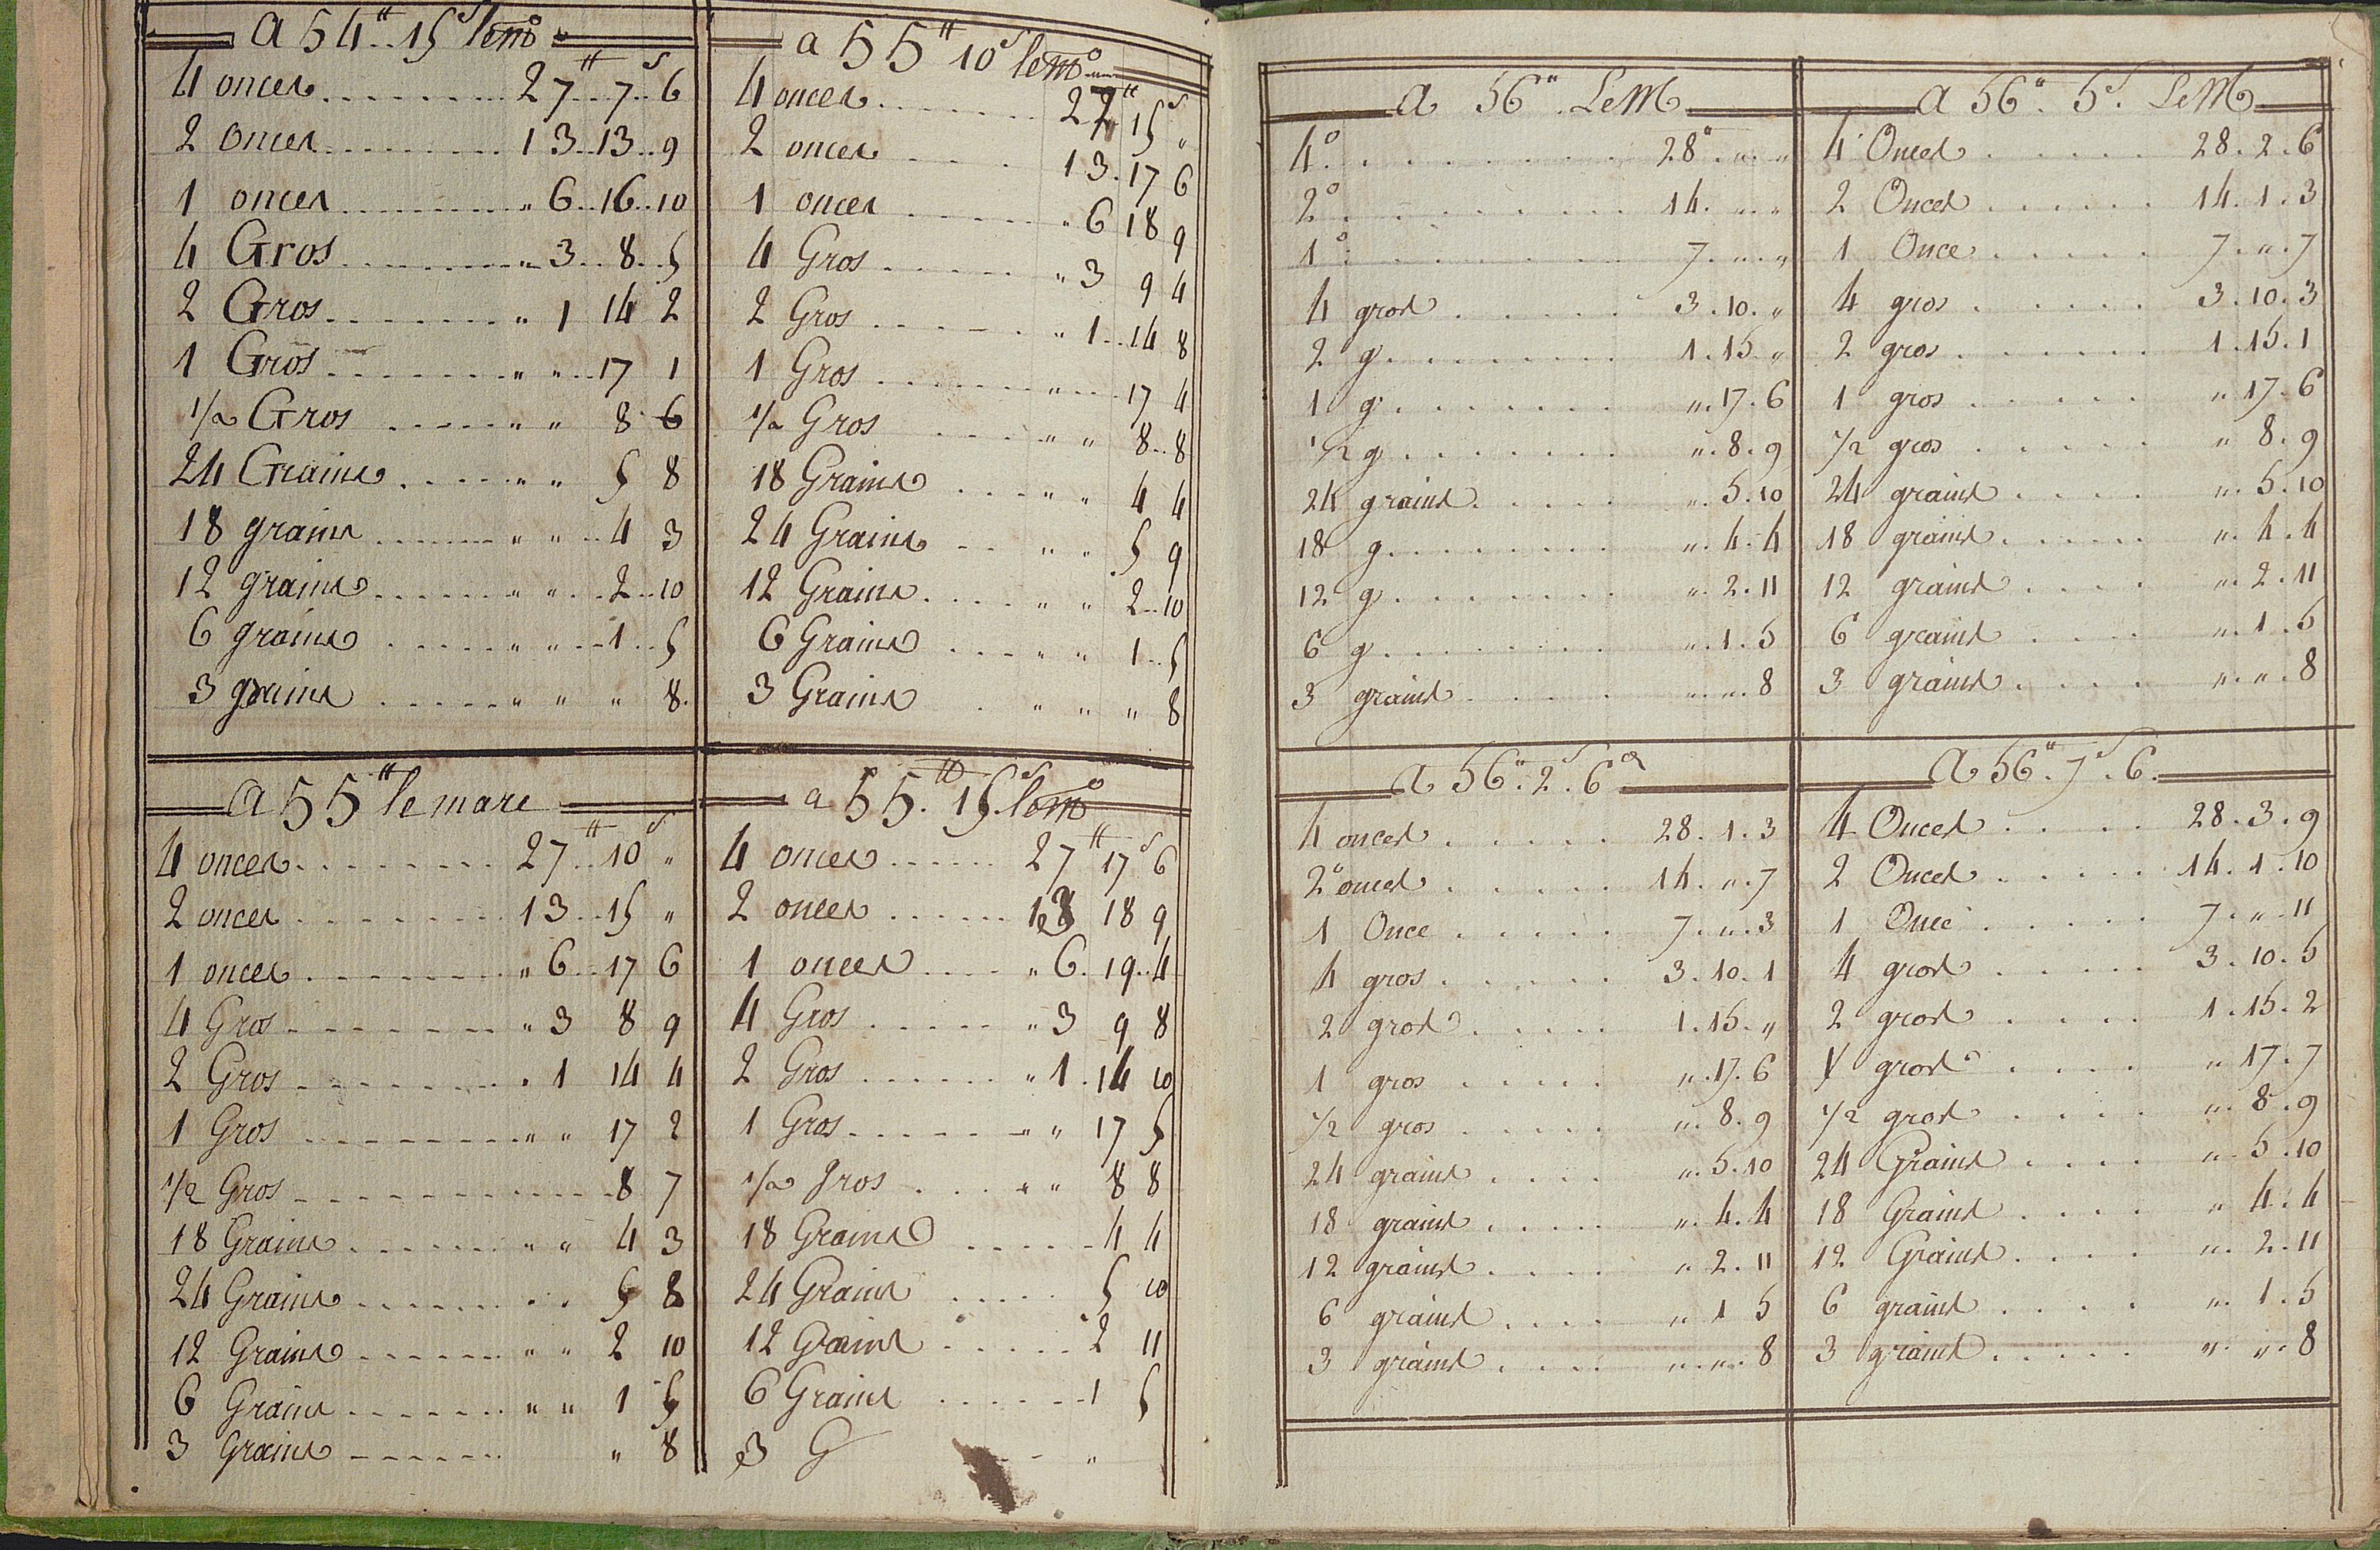 a 54# 15s le mo
4 onces 27# 7s 6
2 onces 13 13 9
1 onces " 6 16 10
4 Gros " 3 8 5
2 Gros " 1 14 2
1 Gros " " 17 1
1/2 Gros " " 8 6
24 Grains " " 5 8
18 grains " " 4 3
12 grains " " 2 10
6 grains " " 1 5
3 grains " " " 8
a 55# 10s le mo
4 onces 27# 15s "
2 onces 13 17 6
1 onces " 6 18 9
4 Gros " 3 9 4
2 Gros " 1 14 8
1 Gros " " 17 4
1/2 Gros " " 8 8
18 Grains " " 4 4
24 Grains " " 5 9
12 Grains " " 2 10
6 Grains " " 1 5
3 Grains " " " 8
a 55# le marc
4 onces 27# 10s "
2 onces 13 15 "
1 onces " 6 17 6
4 Gros " 3 8 9
2 Gros " 1 14 4
1 Gros " " 17 2
1/2 Gros 8 7
18 Grains " " 4 3
24 Grains " " 5 8
12 Grains " " 2 10
6 Grains " " 1 5
3 Grains " 8
a 55# 15s le mo
4 onces 27# 17s 6
2 onces 13 18 9
1 onces " 6 19 4
4 Gros " 3 9 8
2 Gros " 1 14 10
1 Gros " " 17 5
1/2 Gros " " 8 8
18 Grains 4 4
24 Grains 5 10
12 Grains 2 11
6 Grains 1 5
3 G "
a 56" Le M
4o 28" " "
2o 14 " "
1o 7 " "
4 gros 3.10."
2 g 1.15."
1 g ".17.6
1/2 g ".8.9
24 grains ".5.10
18 g ".4.4
12 g ".2.11
6 g ".1.5
3 grains "."8
a 56" 5s Le M
4 Onces 28.2.6
2 Onces 14.1.3
1 Once 7.".7
4 gros 3.10.3
2 gros 1.15.1
1 gros " 17.6
1/2 gros " 8.9
24 grains ".5.10
18 grains ".4.4
12 grains ".2.11
6 grains ".1.5
3 grains ".".8
a 56" 2s 6d
4 onces 28.1.3
2o onces 14.".7
1 Once 7.".3
4 gros 3.10.1
2 gros 1.15."
1 gros ".17.6
1/2 gros ".8.9
24 grains ".5.10
18 grains ".4.4
12 grains ".2.11
6 grains " 1 5
3 grains ".".8
a 56" 7s 6
4 Onces 28.3.9
2 Onces 14.1.10
1 Once 7.".11
4 gros 3.10.5
2 gros 1.15.2
1 gros " 17.7
1/2 gros ".8.9
24 Grains ".5.10
18 Grains " 4.4
12 Grains ".2.11
6 grains ".1.5
3 grains ".".8